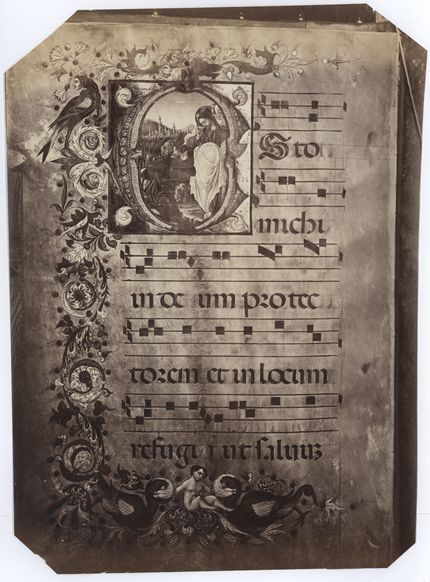 ESto
michi
in de um protec
torem et in locum
refugi i ut saluuz